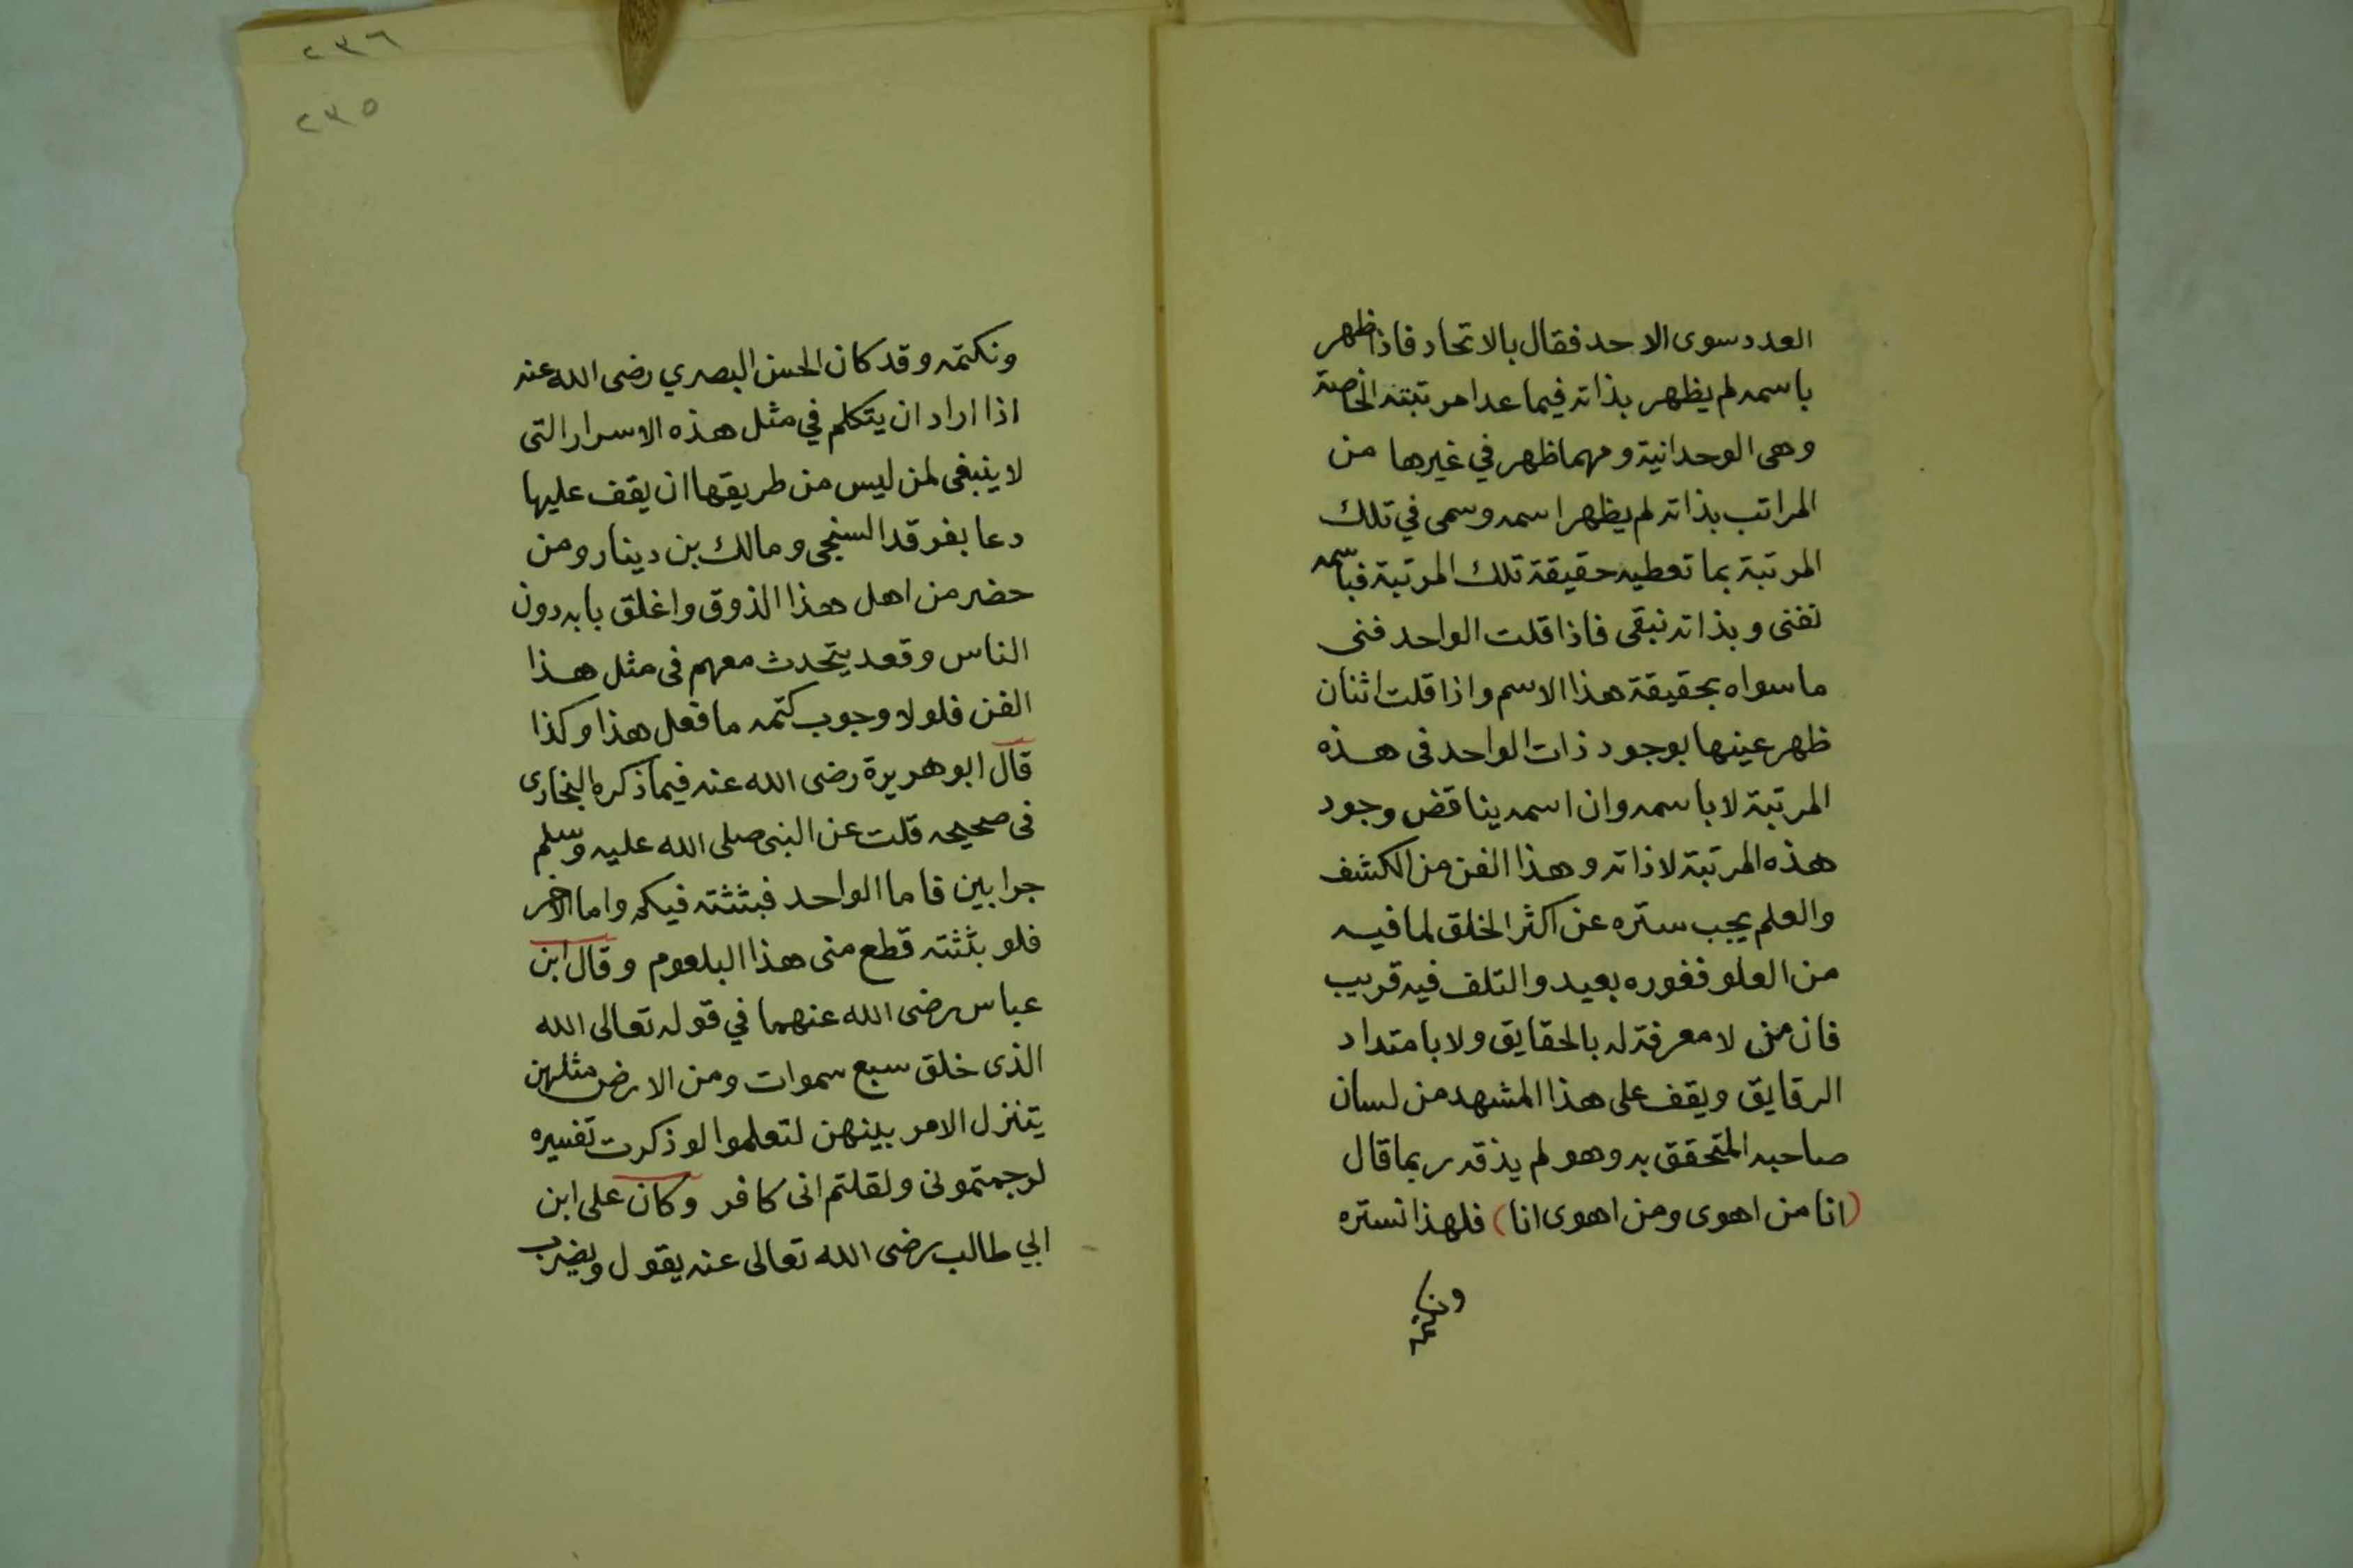 العدد سوى الاحد فقال بالاتحاد فاذا ظهر
باسمه لم يظهر بذاته فيما عدا مرتبته الخاصة
وهى الوحدانية ومهما ظهر في غيرها من
المراتب بذاته لم يظهر اسمه وسمى في تلك
المرتبة بما تعطيه حقيقة تلك المرتبة فباسمه
تفنى وبذاته نبقى فاذا قلت الواحد فنى
ما سواه بحقيقة هذا الاسم واذا قلت اثنان
ظهر عينها بوجود ذات الواحد فى هذه
المرتبة لا باسمه وان اسمه يناقض وجود
هذه المرتبة لا ذاته وهذا الفن من الكشف
والعلم يجب ستره عن اكثر الخلق لما فيه
من العلو فغوره بعيد والتلف فيه قريب
فان من لا معرفة له بالحقايق ولا بامتداد
الرقايق ويقف على هذا المشهد من لسان
صاحبه المتحقق به وهو لم يذقه ربما قال
(انا من اهوى ومن اهوى انا) فلهذا نستره
ونكتمه
٢٣٦
٢٣٥
ونكتمه وقد كان الحسن البصري رضى الله عنه
اذا اراد ان يتكلم في مثل هذه الاسرار التى
لا ينبغى لمن ليس من طريقها ان يقف عليها
دعا بفرقد السنجى ومالك بن دينار ومن
حضر من اهل هذا الذوق واغلق بابه دون
الناس وقعد يتحدث معهم فى مثل هذا
الفن فلولا وجوب كتمه ما فعل هذا وكذا
قال ابو هريرة رضى الله عنه فيما ذكره البخارى
فى صحيحه قلت عن النبى صلى الله عليه وسلم
جرابين فاما الواحد فبثثته فيكم واما الاخر
فلو بثثته قطع منى هذا البلعوم وقال ابن
عباس رضى الله عنهما في قوله تعالى الله
الذى خلق سبع سموات ومن الارض مثلهن
يتنزل الامر بينهن لتعلموا لو ذكرت تفسيره
لرجمتمونى ولقلتم انى كافر وكان على ابن
ابي طالب رضى الله تعالى عنه يقول ويضرب